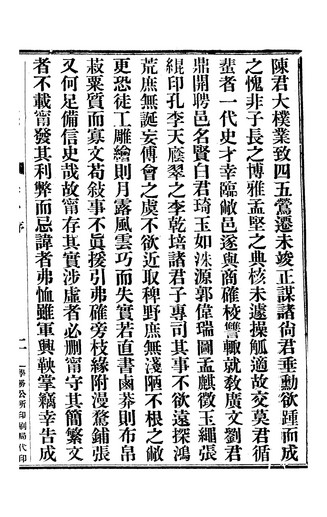 陳君大樸業致四五鶯遷未竣正謀諸尙君垂勳欲踵而成
之愧非子長之博雅孟堅之典核未遑操觚適故交莫君循
蜚者一代史才幸臨敝邑遂與商確棱讐輒就敎廣文劉君
鼎開聘邑名賢白君琦玉如洙源郭偉瑞圖孟麒徵玉繩張
緄印孔李天廕翠之李乾培諸君子專司其事不欲遠探鴻
荒庶無誕妄傅會之虞不欲近取稗野庶無淺陋不根之敝
更恐徒工雕繪則月露風雲巧而失實若直書鹵莽則布帛
菽粟質而寡文苟敍事不眞援引弗確旁枝緣附漫騖鋪張
又何足備信史哉故甯存其實涉虛者必刪甯守其簡繁文
者不載甯發其利弊而忌諱者弗恤雖軍興鞅掌竊幸告成
序
二
務公所印刷局代印